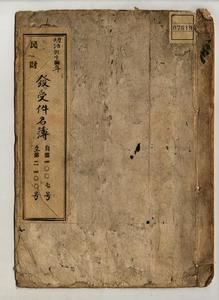 明治四十四年
民財
發受件名簿
自第一〇〇七号
至第二一〇〇号
07619